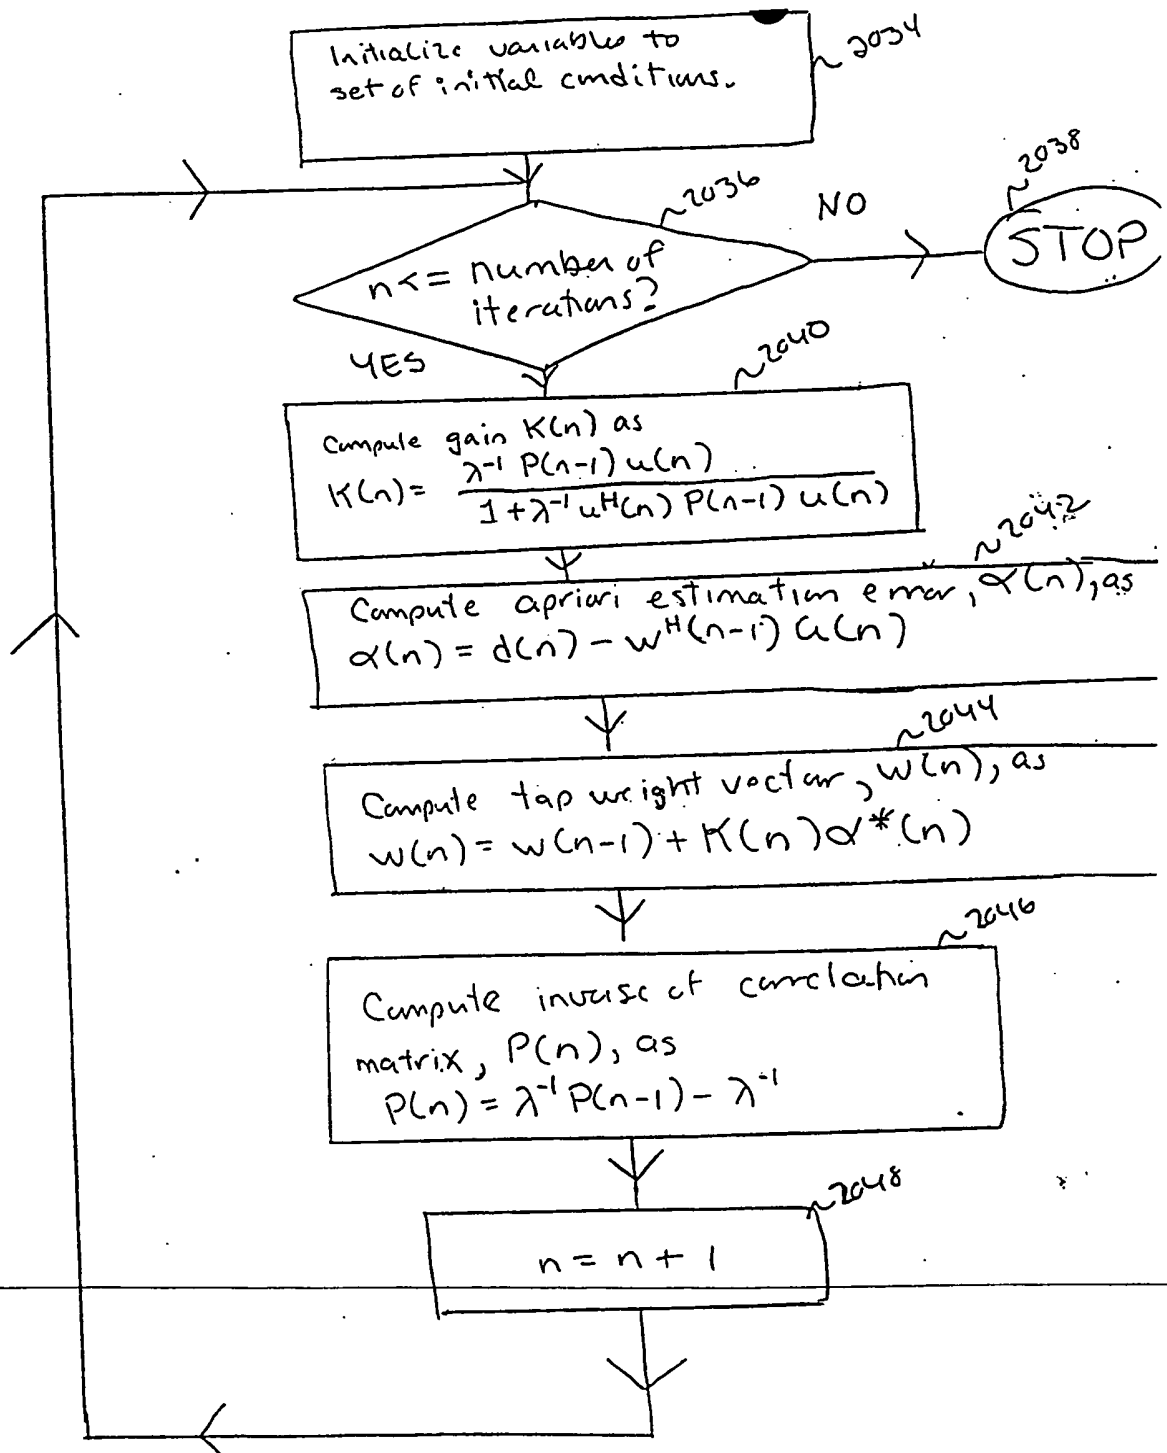 Initialize variables to
set of initial conditions.
2034
2036
n <= number of
iterations?
NO
2038
STOP
YES
2040
Compute gain K(n) as
K(n) = λ⁻¹ P(n-1) u(n)
1 + λ⁻¹ uᴴ(n) P(n-1) u(n)
2042
Compute apriori estimation error, α(n), as
α(n) = d(n) - wᴴ(n-1) u(n)
2044
Compute tap weight vector, w(n), as
w(n) = w(n-1) + K(n) α*(n)
2046
Compute inverse of correlation
matrix, P(n), as
P(n) = λ⁻¹ P(n-1) - λ⁻¹
2048
n = n + 1